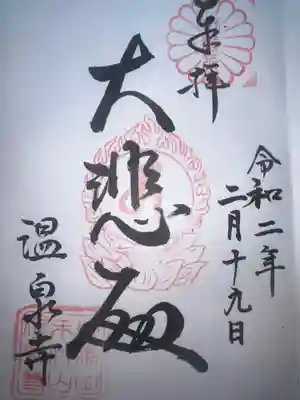 奉拝
令和二年
二月十九日
大悲殿
温泉寺